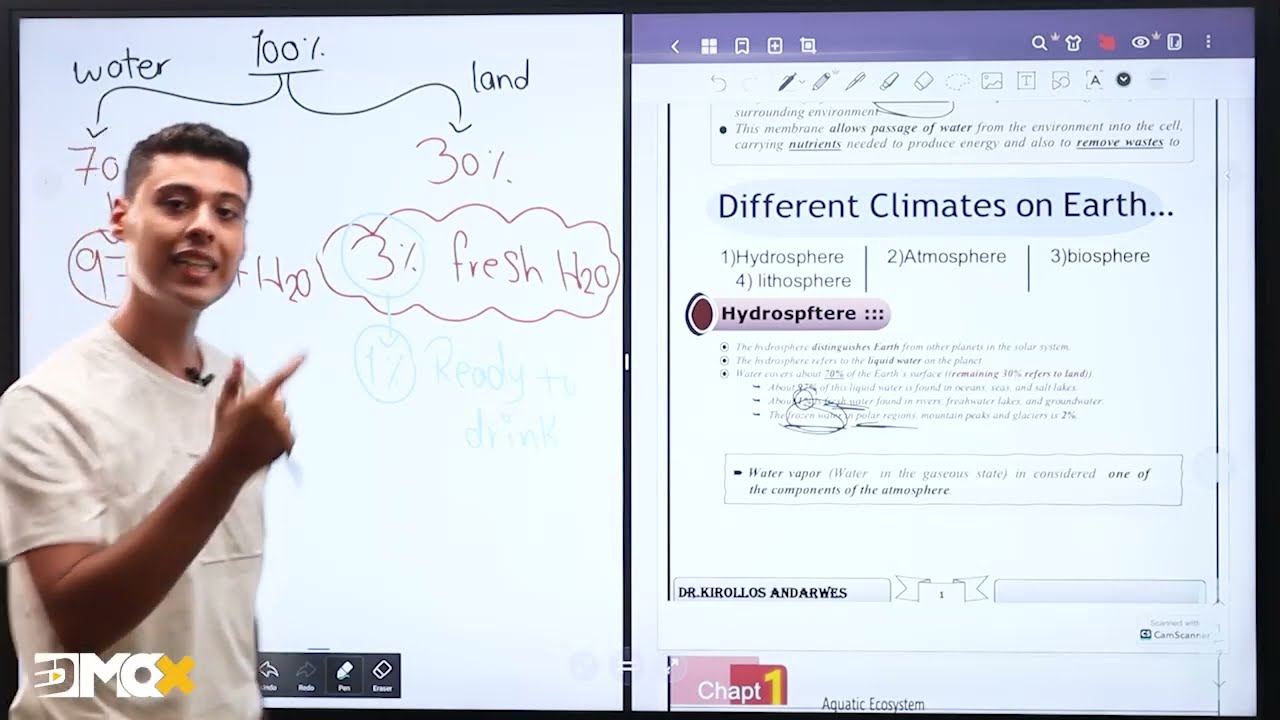 100%
water
land
70
30%
97
+ H₂O
3% fresh H₂O
1% Ready to
drink
surrounding environment
● This membrane allows passage of water from the environment into the cell,
carrying nutrients needed to produce energy and also to remove wastes to
Different Climates on Earth...
1)Hydrosphere 2)Atmosphere 3)biosphere
4) lithosphere
Hydrospftere :::
The hydrosphere distinguishes Earth from other planets in the solar system.
The hydrosphere refers to the liquid water on the planet
Water covers about 70% of the Earth's surface ((remaining 30% refers to land)).
About 97% of this liquid water is found in oceans, seas, and salt lakes.
About 1% is fresh water found in rivers, freshwater lakes, and groundwater.
The frozen water in polar regions, mountain peaks and glaciers is 2%.
Water vapor (Water in the gaseous state) in considered one of
the components of the atmosphere.
DR.KIROLLOS ANDARWES
1
Scanned with
CS CamScanner
Chapt 1
Aquatic Ecosystem
Undo Redo Pen Eraser
EMQX